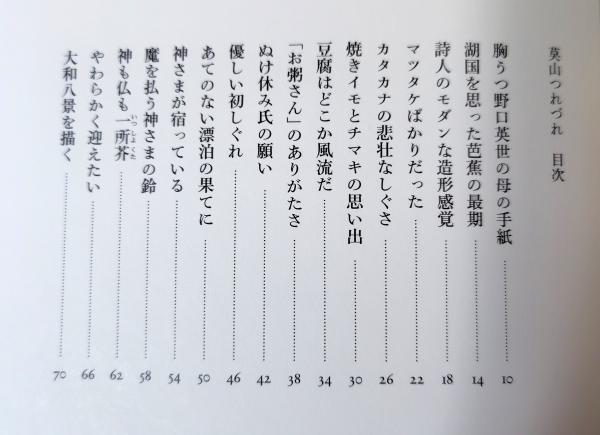 莫山つれづれ 目次
胸うつ野口英世の母の手紙 10
湖国を思った芭蕉の最期 14
詩人のモダンな造形感覚 18
マツタケばかりだった 22
カタカナの悲壮なしぐさ 26
焼きイモとチマキの思い出 30
豆腐はどこか風流だ 34
「お粥さん」のありがたさ 38
ぬけ休み氏の願い 42
優しい初しぐれ 46
あてのない漂泊の果てに 50
神さまが宿っている 54
魔を払う神さまの鈴 58
神も仏も一所芥 62
いっしょくた
やわらかく迎えたい 66
大和八景を描く 70